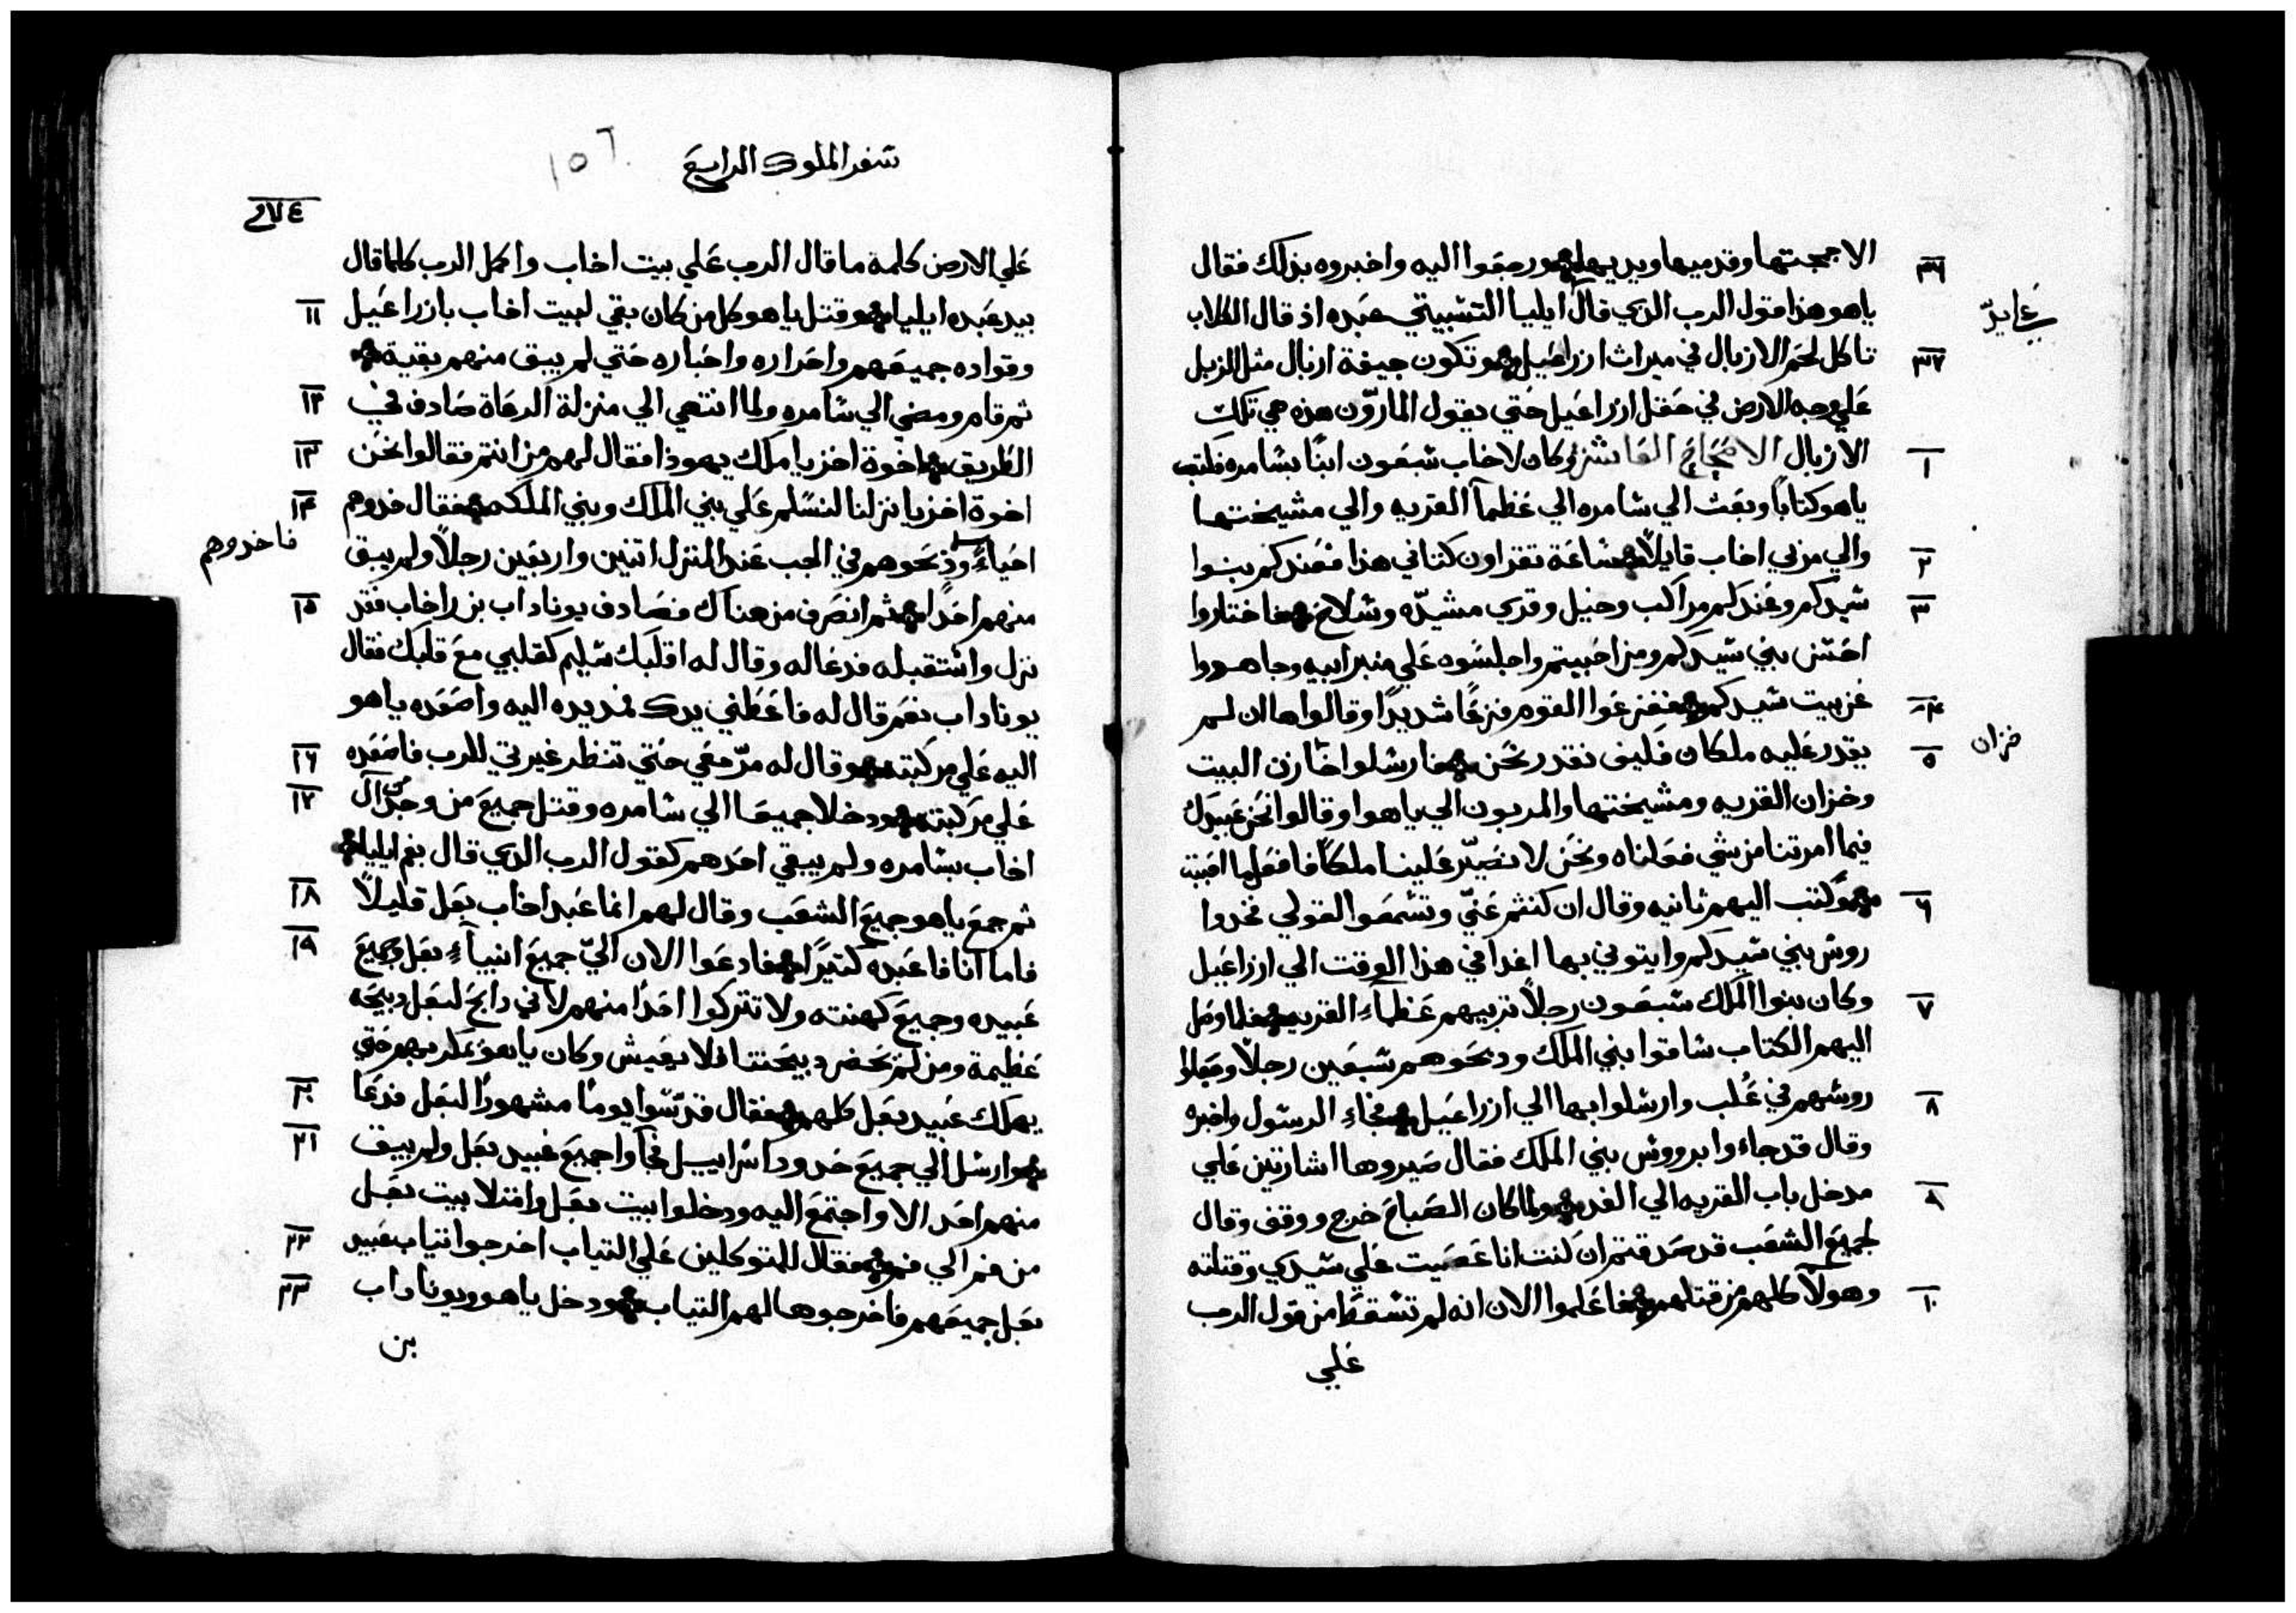 الا جمجمتها وقدميها ويديها ورجعوا اليه واخبروه بذلك فقال
٣٦
ياهو هذا قول الرب الذي قال ايليا التشبيتي عبده اذ قال الكلاب
تاكل لحم الازبال في ميراث ازراعيل وتكون جيفة ازبال مثل الزبل
٣٧
علي وجه الارض في حقل ازراعيل حتي يقول المارّون هذه هي تلك
الازبال الاصحاح العاشر وكان لاخاب سبعون ابنًا بسامره فكتب
١
ياهو كتابًا وبعث الي سامره الي عظمآ القريه والي مشيختها
والي مربي اخاب قايلًا ساعة تقراون كتابي هذا فعندكم بنوا
٢
سيدكم وعندكم مراكب وخيل وقري مشيدّه وسلاح فاختاروا
٣
احسن بني سيدكم ومن احببتم واجلسوه علي منبر ابيه وجاهدوا
عن بيت سيدكم ففزعوا القوم فزعًا شديدًا وقالوا هاان لم
٤
يقدر عليه ملكان فكيف نقدر نحن فارسلوا خازن البيت
٥
خزان
وخزان القريه ومشيختها والمربون الي ياهوا وقالوا نحن عبيدك
فيما امرتنا من شي فعلناه ونحن لا نصيّر علينا ملكًا فافعل ما احببت
وكتب اليهم ثانيه وقال ان كنتم عنّي وتسمعوا لقولي فخدوا
٦
روس بني سيدكم وايتوني بها اغدا في هذا الوقت الي ازراعيل
وكان بنوا الملك سبعون رجلًا تربيهم عظمآء القريه فلما وصل
٧
اليهم الكتاب ساقوا بني الملك ودبحوهم سبعين رجلًا وجعلوا
روسهم في غُلب وارسلوا بها الي ازراعيل فجاء الرسول واخبره
٨
وقال قد جاءوا بروس بني الملك فقال صيروها اشارتين علي
مدخل باب القريه الي الغد ولما كان الصباح خرج ووقف وقال
٩
لجميع الشعب قد صدقتم ان كنت انا عصيت علي سيدي وقتلته
وهولآ كلهم من قتلهم فاعلموا الان انه لم تسقط من قول الرب
١٠
علي
سفر الملوك الرابع
١٥٦
علي الارض كلمة ما قال الرب علي بيت اخاب واكمل الرب كلما قال
بيد عبده ايليا وقتل ياهو كل من كان بقي لبيت اخاب بازراعيل
١١
وقواده جميعهم واحراره واحباره حتي لم يبق منهم بقية
ثم قام ومضي الي سامره ولما انتهي الي منزلة الرعاة صادف في
١٢
الطريق اخوة احزيا ملك يهودا فقال لهم من انتم فقالوا نحن
١٣
اخوة احزيا نزلنا لنسلم علي بني الملك وبني الملكه فقال خدوهم
١٤
احياءً ودبحوهم في الجب عند المنزل اتنين واربعين رجلًا ولم يبق
فاخدوهم
منهم احدًا ثم انصرف من هناك فصادف يوناداب بن راخاب قد
١٥
نزل واستقبله فدعاله وقال له اقلبك سليم كقلبي مع قلبك فقال
يوناداب نعم قال له فاعطني يدك فمد يده اليه واصعده ياهو
اليه علي مركبته وقال له مرّ معي حتي تنظر غيرتي للرب فاصعده
١٦
علي مركبته ودخلا جميعا الي سامره وقتل جميع من وجد من آل
١٧
اخاب بسامره ولم يبقي احدهم كقول الرب الدي قال بفم ايليا
ثم جمع ياهو جميع الشعب وقال لهم انما عبد اخاب بعل قليلًا
١٨
فاما انا فاعبده كتيرًا فادعوا الان اليّ جميع انبيآء بعل وجميع
١٩
عبيده وجميع كهنته ولا تتركوا احدًا منهم لاني دابح لبعل دبيحه
عظيمة ومن لم يحضر دبيحتنا فلا يعيش وكان ياهو يمكر بهم حتي
يهلك عبيد بعل كلهم فقال قدّسوا يومًا مشهورًا لبعل فدعا
٢٠
وارسل الي جميع حدود اسراييل فجآوا جميع عبيد بعل ولم يبق
٢١
منهم احد الا واجتمع اليه ودخلوا بيت بعل وامتلا بيت بعل
من فم الي فم فقال للمتوكلين علي التياب اخرجوا تياب عبيد
٢٢
بعل جميعهم فاخرجوها لهم التياب ودخل ياهو ويوناداب
٢٣
بن